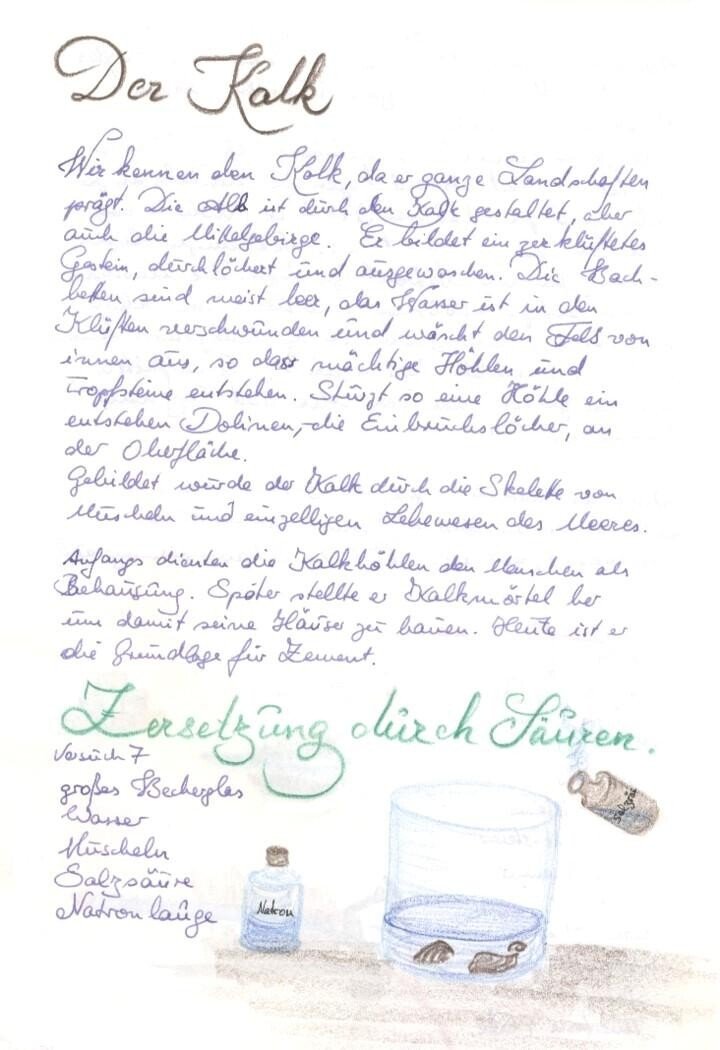 Der Kalk
Wir kennen den Kalk, da er ganze Landschaften
prägt. Die Alb ist durch den Kalk gestaltet, aber
auch die Mittelgebirge. Er bildet ein zerklüftetes
Gestein, durchlöchert und ausgewaschen. Die Bach-
betten sind meist leer, das Wasser ist in den
Klüften verschwunden und wäscht den Fels von
innen aus, so dass mächtige Höhlen und
Tropfsteine entstehen. Stürzt so eine Höhle ein
entstehen Dolinen, die Einbruchslöcher, an
der Oberfläche.
Gebildet wurde der Kalk durch die Skelette von
Muscheln und einzelligen Lebewesen des Meeres.
Anfangs dienten die Kalkhöhlen den Menschen als
Behausung. Später stellte er Kalkmörtel her
um damit seine Häuser zu bauen. Heute ist er
die Grundlage für Zement.
Zersetzung durch Säuren.
Versuch 7
großes Becherglas
Wasser
Muscheln
Salzsäure
Natronlauge
Natron